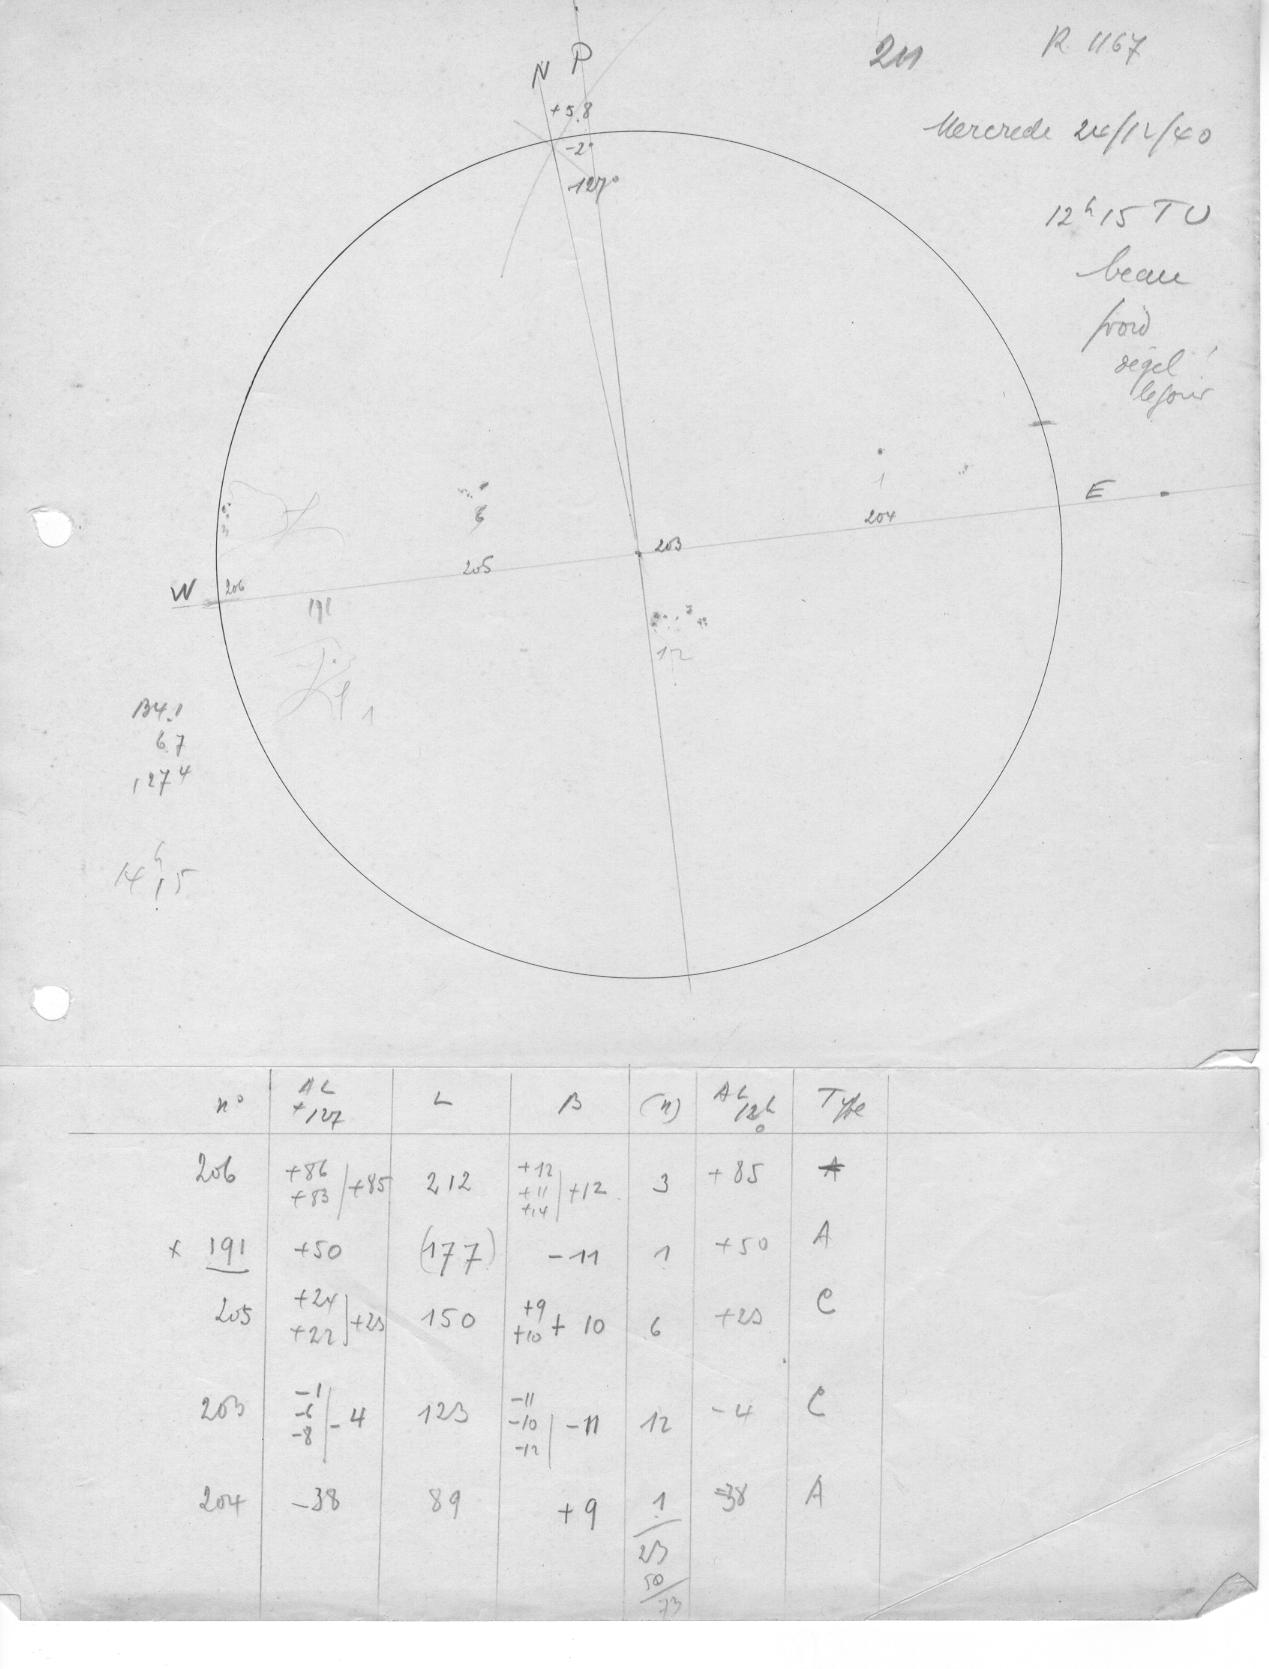 N P
211
R 1167
+5.8
-2°
127°
Mercredi 24/12/40
12h 15 TU
beau
froid
dégel !
le jour
1
E
204
6
203
205
W
206
191
12
1
134.1
6.7
127.4
14h 15
n° AL +127 L B (n) AL 12h Type
206 +86 +83 +85 212 +12 +11 +14 +12 3 +85 A
x 191 +50 (177) -11 1 +50 A
205 +24 +22 +23 150 +9 +10 +10 6 +23 C
203 -1 -6 -8 -4 123 -11 -10 -12 -11 12 -4 C
204 -38 89 +9 1 -38 A
23
50
73